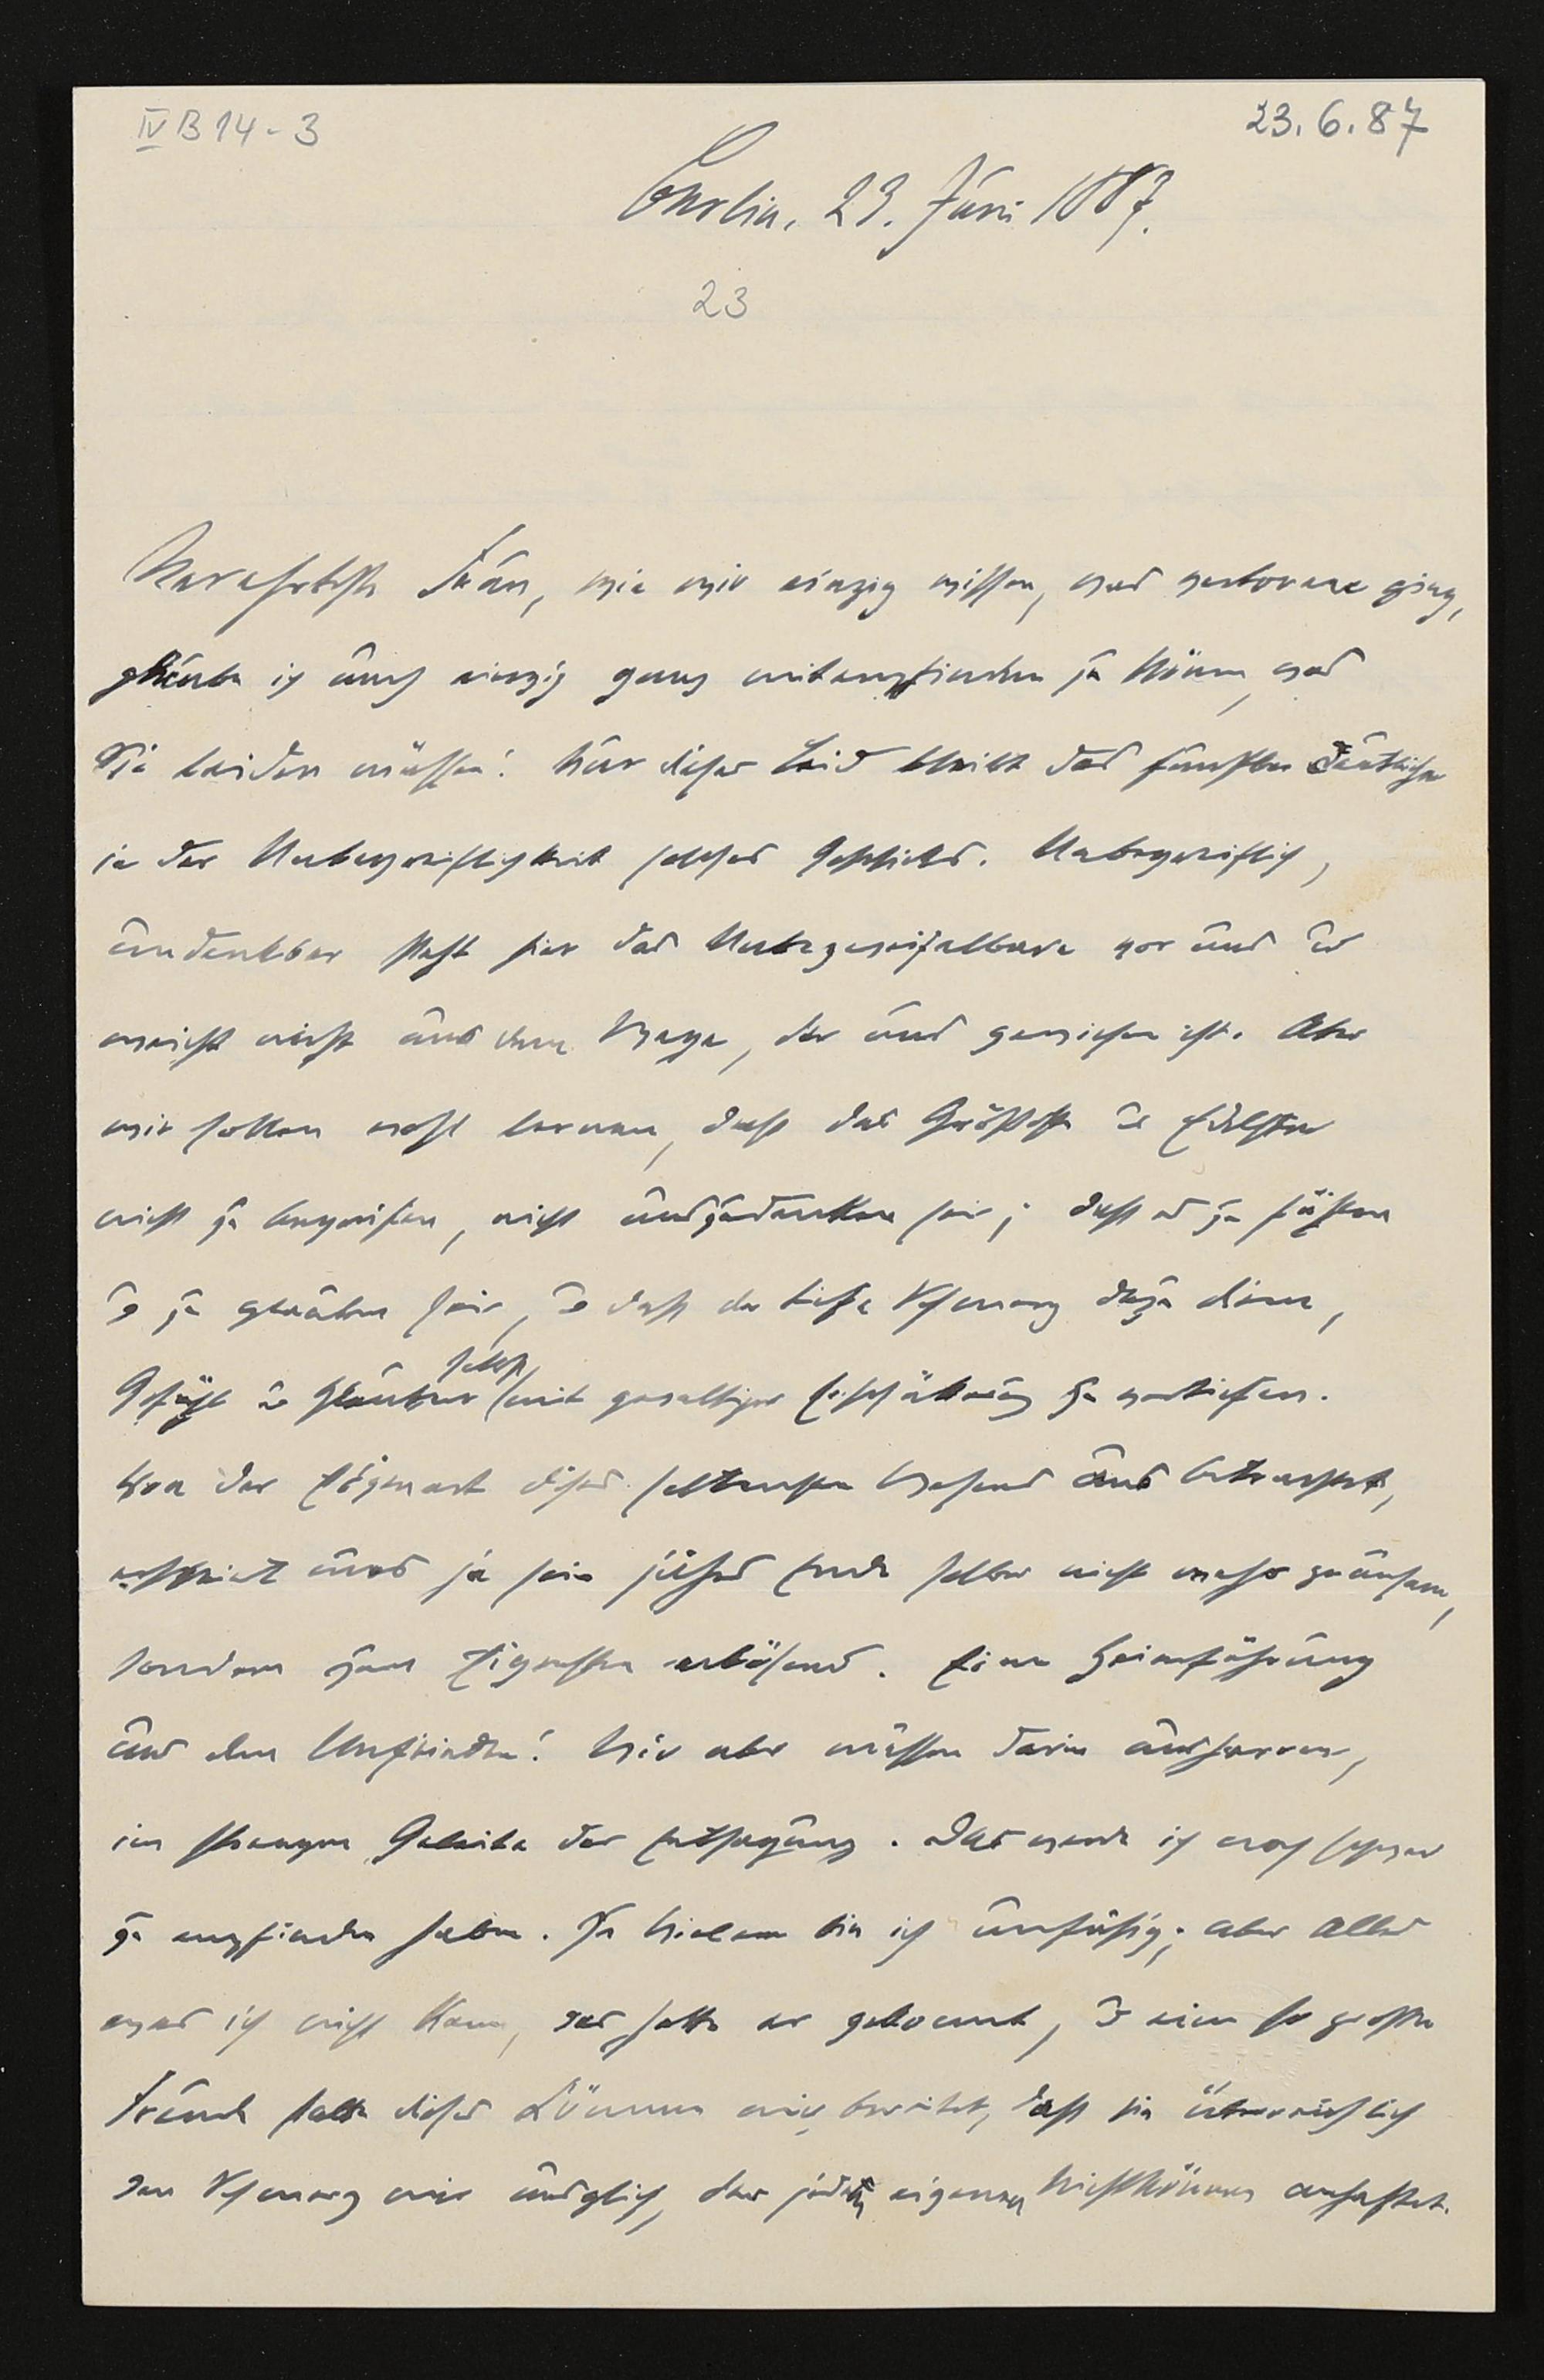 IV B 14 - 3
23.6.87
Berlin, 23. Juni 1887.
23
Verehrteste Frau, wie wir einzig wissen, was verloren ging,
glaube ich auch einzig ganz mitempfinden zu können, was
Sie leiden müssen! Nur dieses Leid bleibt das
in der Unbegreiflichkeit solches Geschicks. Unbegreiflich,
undenkbar steht hier das Unbezweifelbare vor uns u.
weicht nicht aus dem Wege, der uns gewiesen ist. Aber
wir sollen wohl lernen, dass das Grösseste u. Edelste
nicht zu begreifen, nicht auszudenken sei; dass es zu fühlen
u. zu glauben sei, u. dass der tiefe Schmerz dazu diene,
Gefühl u. Glauben selbst mit gewaltiger Erschütterung zu vertiefen.
Von der Eigenart dieses seltensten Wesens aus betrachtet,
erscheint uns ja sein jähes Ende selber nicht mehr grausam,
sondern zum Eigensten erlösend. Eine Heimführung
aus dem Unfrieden! Wir aber müssen darin ausharren,
im strengen Geleite der Entsagung. Das werde ich noch schwer
zu empfinden haben. Zu Vielem bin ich unfähig; aber Alles
was ich nicht kann, das hatte er gekonnt, u. eine so grosse
Freude hatte dieses Können mir bereitet, dass sie überreichlich
den Schmerz mir ausglich, der jedem eigenen Nichtkönnen anhaftet.